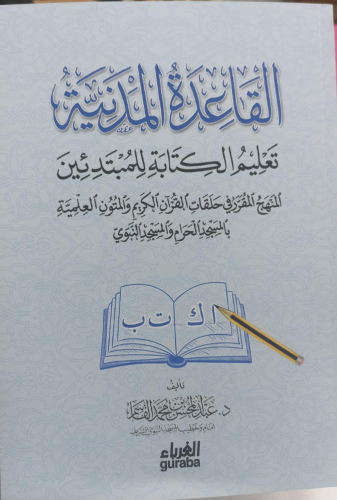 القَاعِدَةُ المَدَنِيَّة
تَعْلِيمُ الكِتَابَةِ لِلْمُبْتَدِئِينَ
المنهج المقرر في حلقات القرآن الكريم والمتون العلمية
بالمسجد الحرام والمسجد النبوي
ا ك ت ب
تأليف
د. عبد المحسن بن محمد القاسم
إمام وخطيب المسجد النبوي الشريف
الغرباء
guraba